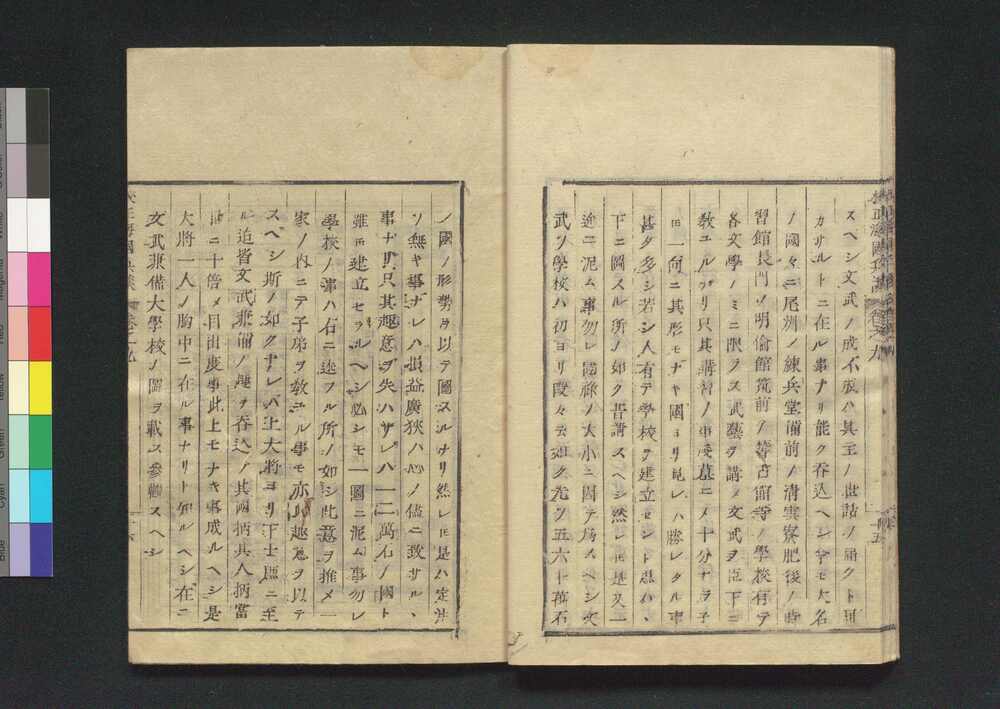 スヘシ文武ノ成不成ハ其主ノ世話ノ届クト届
カサルトニ在ル事ナリ能ク呑込ヘシ今モ大名
ノ國々ニ尾州ノ練兵堂備前ノ清寰寮肥後ノ時
習館長門ノ明倫館筑前ノ等古館等ノ學校有テ
各文學ノミニ限ラス武藝ヲ講メ文武ヲ臣下ニ
教ユル只其講習ノ メ十分ナラ子
𪜈一向ニ其形モナキ國ヨリ見レハ勝レタル事
甚タ多シ若シ人有テ學校ヲ建立セント思ハヽ
下ニ圖スル所ノ如ク普請スヘシ然レ𪜈是又一
途ニ泥ム事勿レ國祿ノ大小ニ因テ為スヘシ文
武ノ學校ハ初ヨリ段々云如ク先ツ五六十萬石
ノ國ノ形勢ヲ以テ圖スルナリ然レ𪜈是ハ定法
ソ無キ事ナレハ損益廣狹ハ心ノ儘ニ致サルヽ
事ナリ只其趣意ヲ失ハサレハ一二萬石ノ國ト
雖𪜈建立セラルヘシ必シモ一圖ニ泥ム事勿レ
學校ノ事ハ右ニ述フル所ノ如シ此意ヲ推メ一
家ノ内ニテ子弟ヲ教ユル事モ亦此趣意ヲ以テ
スヘシ斯ノ如クナレバ上大將ヨリ下士庶ニ至
ル迄皆文武兼備ノ趣ヲ呑込ノ其國柄其人柄當
時ニ十倍メ目出度事此上モナキ事成ルヘシ是
大將一人ノ胸中ニ在ル事ナリト知ルヘシ在ニ
文武兼備大學校ノ圖ヲ載ス參觀スヘシ